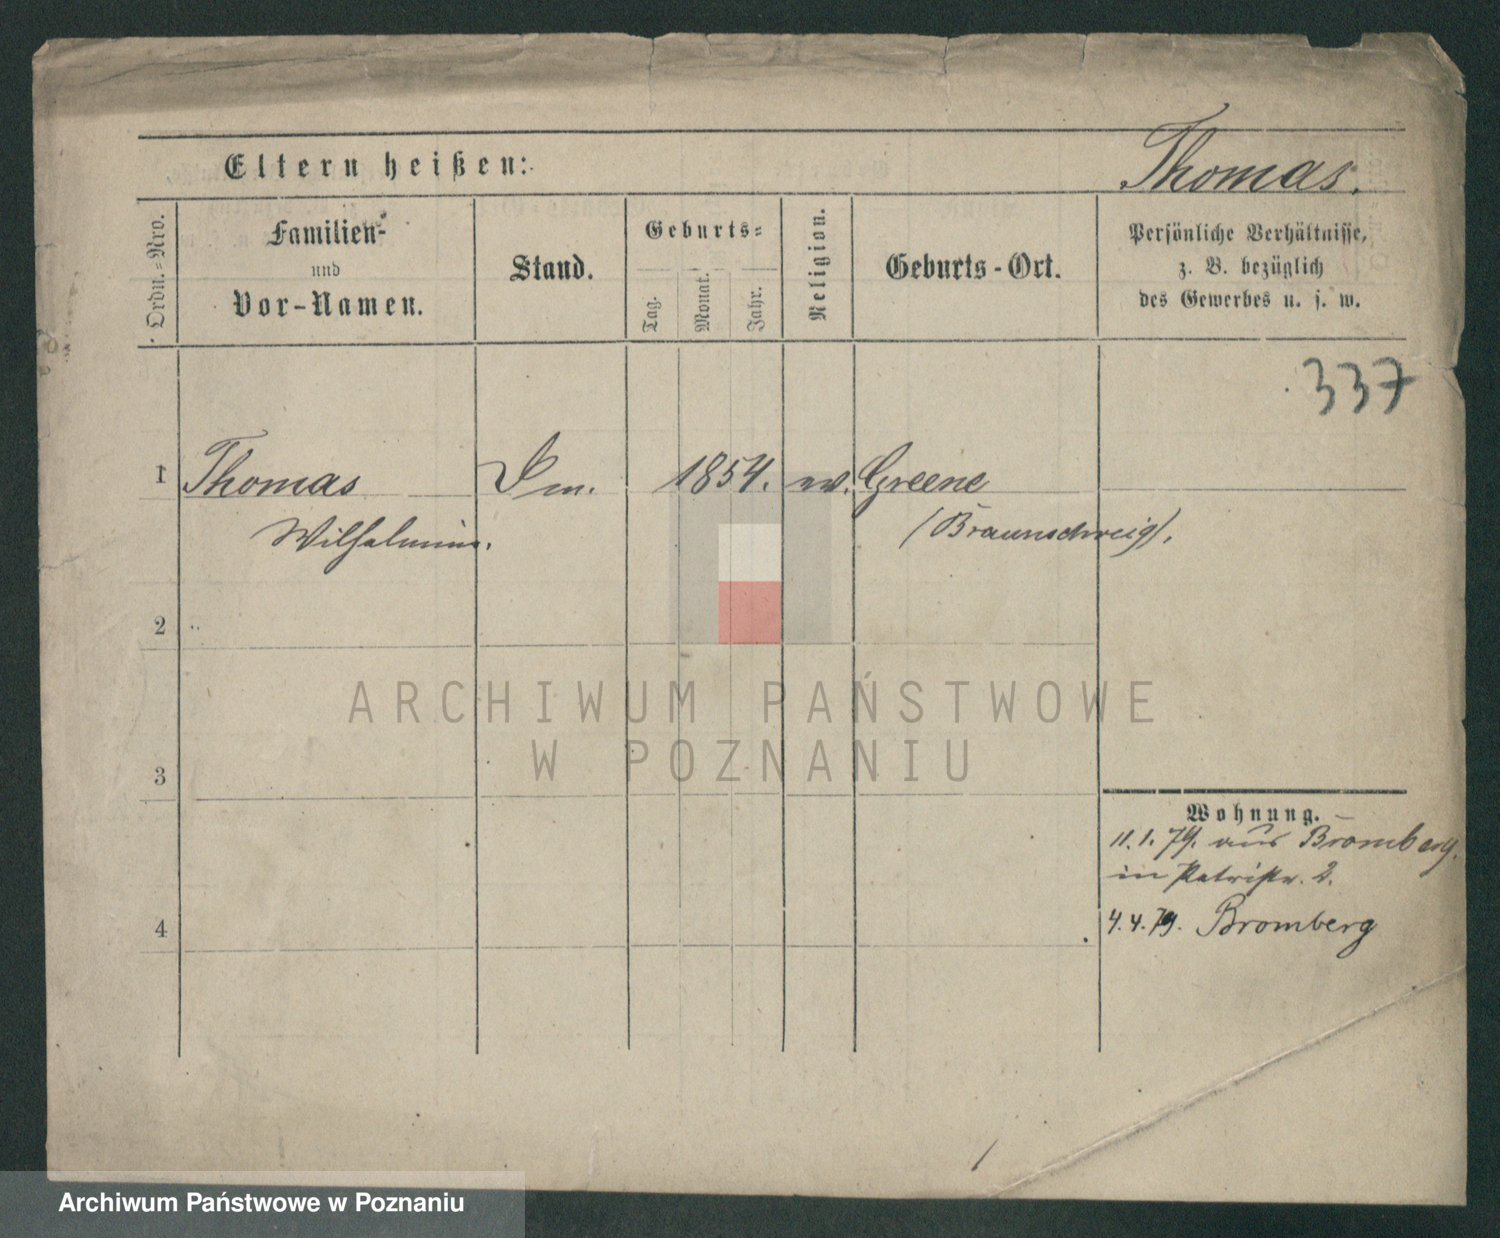 Eltern heißen:
Thomas.
Ordn.=Nro.
Familien-
und
Vor-Namen.
Stand.
Geburts=
Tag.
Monat.
Jahr.
Religion.
Geburts-Ort.
Persönliche Verhältnisse,
z. B. bezüglich
des Gewerbes u. s. w.
337
1 Thomas 1854. Greene
Wilhelmine. (Braunschweig).
2
3
4
Wohnung.
11.1.79. aus Bromberg.
in 2.
4.4.79. Bromberg
ARCHIWUM PAŃSTWOWE
W POZNANIU
Archiwum Państwowe w Poznaniu